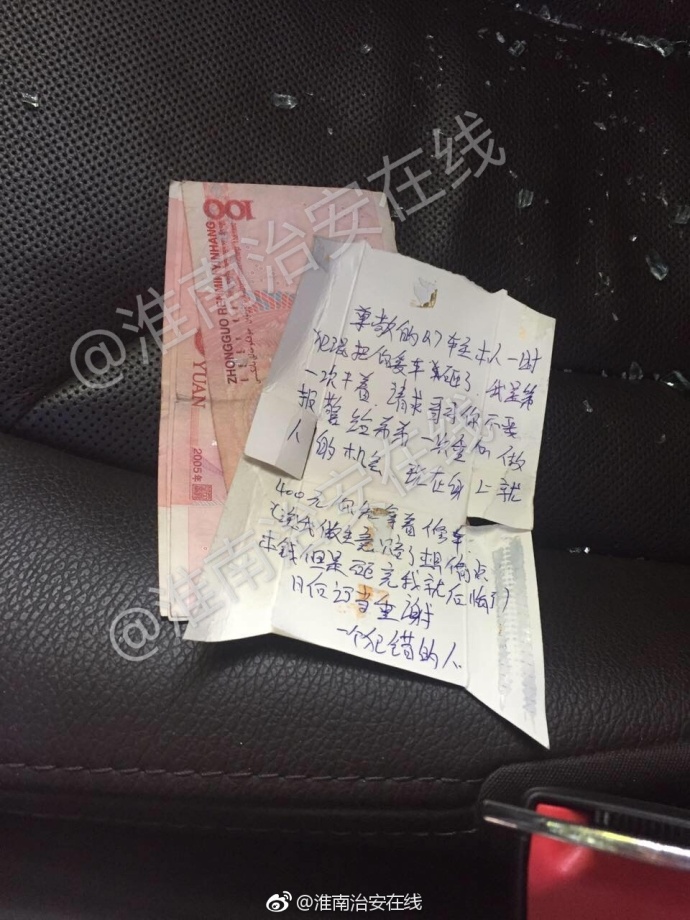 @淮南治安在线
100
ZHONGGUO RENMIN YINHANG
YUAN
2005年
尊敬的Q7车主本人一时
犯混把你爱车砸了.我是第
一次干着.请求哥哥你不要
报警给弟弟一次重新做
人的机会 现在身上就
400元你先拿着修车.
(我做生意赔了想偷点
本钱但是砸完我就后悔了)
日后定当重谢
一个犯错的人
@淮南治安在线
@淮南治安在线